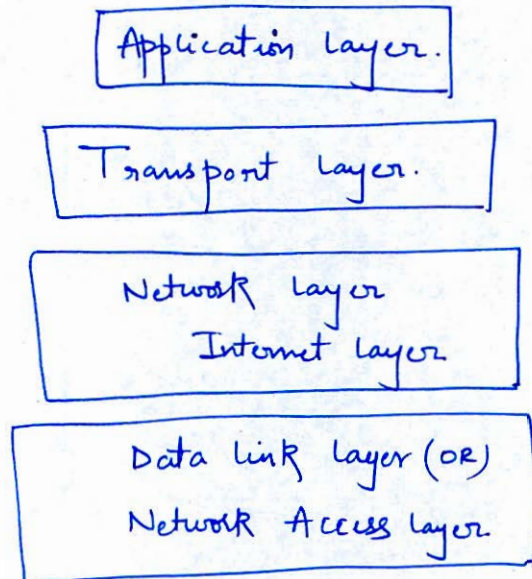 Application Layer.
Transport Layer.
Network Layer
Internet Layer
Data Link Layer (OR)
Network Access Layer